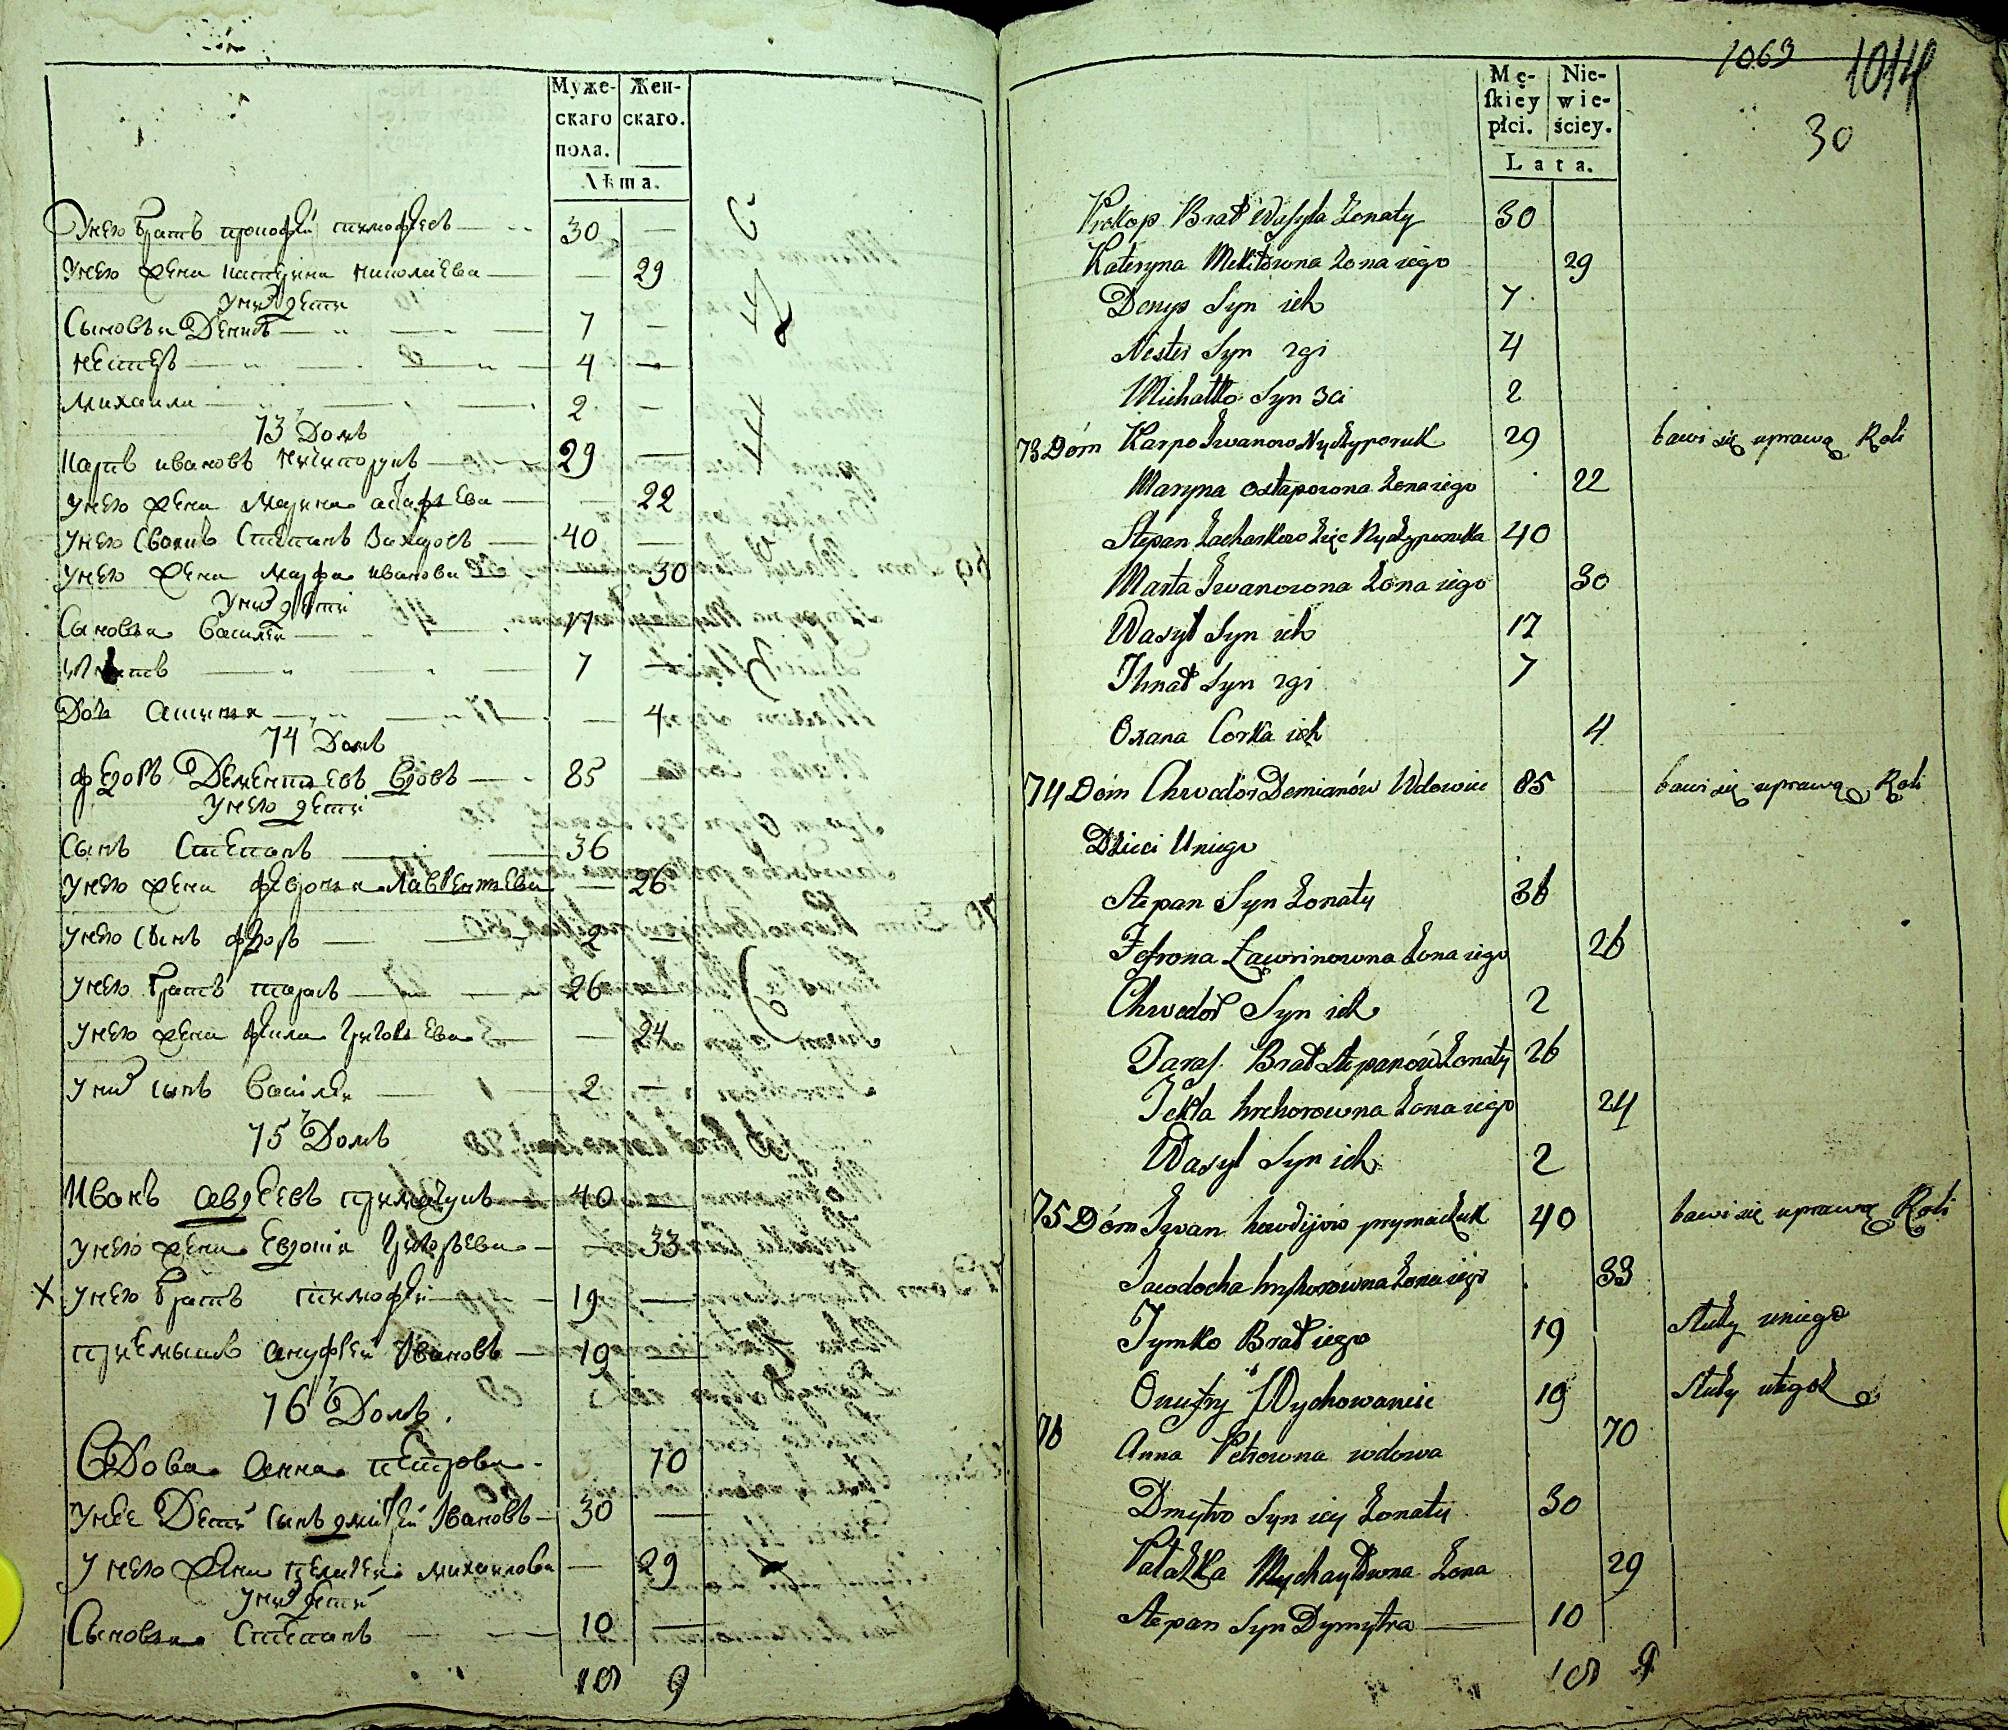 Муже-
скаго
пола.
Жен-
скаго.
Лѣта.
Унего братъ прокофей тимофеевъ 30 —
Унего жена катерина николаева — 29
Унихъ дети
Сыновья Денисъ 7 —
нестеръ 4 —
михаила 2 —
73 Домъ
карпъ ивановъ 29 —
Унего жена марина — 22
Унего своякъ Степанъ 40 —
Унего жена марфа иванова — 30
Унихъ дети
Сыновья Василей 17 —
7 —
Дочь — 4
74 Домъ
федоръ Дементьевъ вдовъ 85
Унего дети
Сынъ Степанъ 36
Унего жена Лаврентьева — 26
Унего сынъ федоръ 2 —
Унего братъ тарасъ 26 —
Унего жена фекла григорьева — 24
Унихъ сынъ Василей 2 —
75 Домъ
Иванъ авдеевъ примачукъ 40 —
Унего жена Евдокия григорьева — 33
х Унего братъ тимофей 19 —
приемышъ ануфрей Ивановъ 19 —
76 Домъ.
Вдова анна петрова 70
Унее Дети сынъ дмитрей Ивановъ 30 —
Унего жена пелагея михаилова — 29
Унихъ дети
Сыновья Степанъ 10 —
9
1063
30
Mę-
skiey
płci.
Nie-
wie-
ściey.
Lata.
Prokop Brat Wasyla Żonaty 30
Kateryna Mekitowna Żona iego 29
Denys Syn ich 7
Nester Syn 2gi 4
Michałko Syn 3ci 2
73 Dóm Karpo Iwanow Nyczyporuk 29 bawi się uprawą Roli
Maryna Ostapowna Żona iego 22
Stepan Zacharkow Zięć Nyczyporuka 40
Marta Iwanowna Żona iego 30
Wasyl Syn ich 17
Ihnat Syn 2gi 7
Oxana Corka ich 4
74 Dóm Chwedór Demianów Wdowiec 85 bawi się uprawą Roli
Dzieci Uniego
Stepan Syn Żonaty 36
Fefrona Ławrinowna Żona iego 26
Chwedor Syn ich 2
Taras Brat Stepanów Żonaty 26
Tekla hrehorowna Żona iego 24
Wasyl Syn ich 2
75 Dóm Iwan hawdijów prymaczuk 40 bawi się uprawą Roli
Jawdocha hryhorowna Żona iego 33
Tymko Brat iego 19 Służy uniego
Onufry Wychowaniec 19 Służy utegoż
76 Anna Petrowna wdowa 70
Dmytro Syn iey Żonaty 30
Pałażka Mychayłowna Żona 29
Stepan Syn Dymytra 10
9